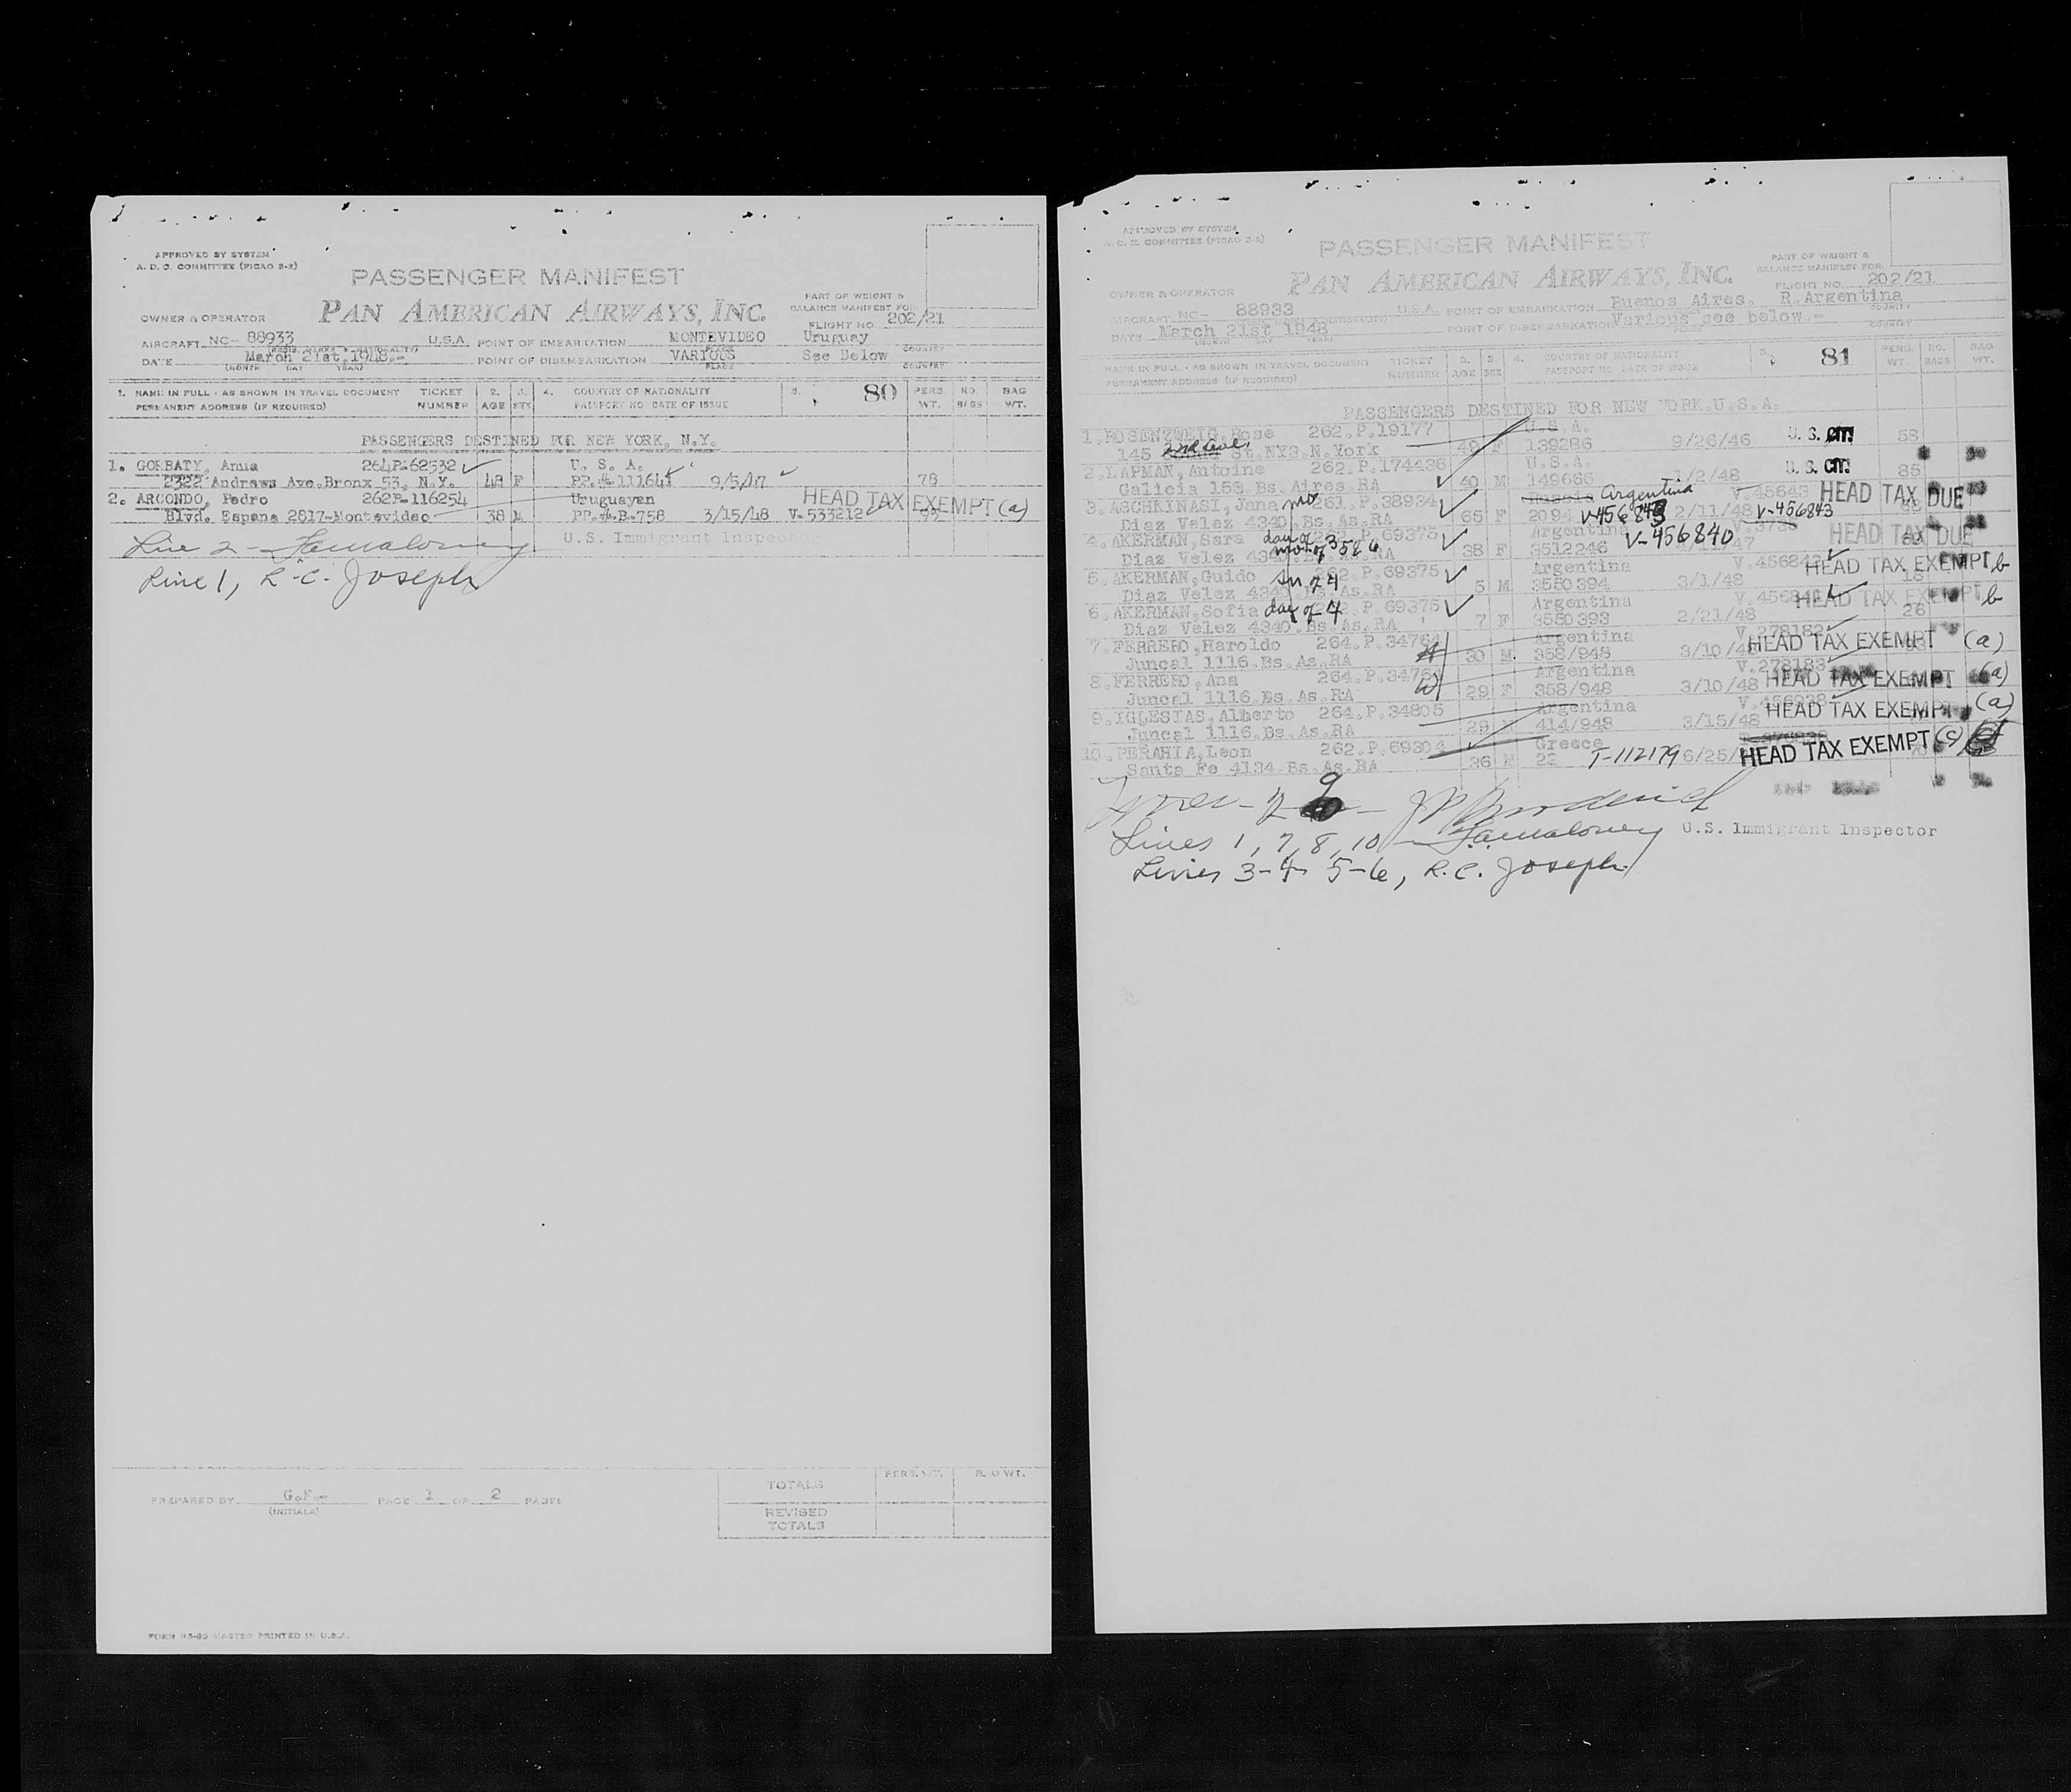 APPROVED BY SYSTEM
A. D. C. COMMITTEE (PICAO 3-2)
PASSENGER MANIFEST
PAN AMERICAN AIRWAYS, INC.
PART OF WEIGHT &
BALANCE MANIFEST FOR
FLIGHT NO. 202/21
OWNER & OPERATOR
AIRCRAFT NC- 88933 U.S.A. POINT OF EMBARKATION MONTEVIDEO Uruguay
DATE March 21st.1948.- POINT OF DISEMBARKATION VARIOUS See Below
(MONTH DAY YEAR) PLACE COUNTRY
1. NAME IN FULL - AS SHOWN IN TRAVEL DOCUMENT TICKET 2. 3. 4. COUNTRY OF NATIONALITY 5. 80 PERS. NO. BAG
PERMANENT ADDRESS (IF REQUIRED) NUMBER AGE SEX PASSPORT NO DATE OF ISSUE WT. BAGS WT.
PASSENGERS DESTINED FOR NEW YORK, N.Y.
1. GORBATY, Anna 264P-62532 U. S. A.
2322 Andrews Ave.Bronx 53, N.Y. 48 F PP.#.111641 9/5/47 78
2. ARCONDO, Pedro 262P-116254 Uruguayan HEAD TAX EXEMPT (a)
Blvd. Espana 2817-Montevideo 38 M PP.#.B-758 3/15/48 V-533212
Line 2 - Famaloney U.S. Immigrant Inspector
Line 1, R.C. Joseph
TOTALS PERS. WT. BAG WT.
PREPARED BY G.F.- PAGE 1 OF 2 PAGES
(INITIALS)
REVISED
TOTALS
MASTER PRINTED IN U.S.A.
APPROVED BY SYSTEM
A. D. C. COMMITTEE (PICAO 3-2)
PASSENGER MANIFEST
PAN AMERICAN AIRWAYS, INC.
PART OF WEIGHT &
BALANCE MANIFEST FOR
FLIGHT NO. 202/21
OWNER & OPERATOR
AIRCRAFT NC- 88933 U.S.A. POINT OF EMBARKATION Buenos Aires. R.Argentina
DATE March 21st 1948 POINT OF DISEMBARKATION Various see below.-
NAME IN FULL - AS SHOWN IN TRAVEL DOCUMENT TICKET 2. 3. 4. COUNTRY OF NATIONALITY 5. 81 PERS. NO. BAG
PERMANENT ADDRESS (IF REQUIRED) NUMBER AGE SEX PASSPORT NO. DATE OF ISSUE WT. BAGS WT.
PASSENGERS DESTINED FOR NEW YORK.U.S.A.
1.ROSENZWEIG,Rose 262.P.19177 U.S.A.
145 St.NY3.N.York 49 F 139286 9/26/46 U. S. CIT. 58
2.LAPMAN,Antoine 262.P.174436 U.S.A.
Galicia 158.Bs.Aires.RA 40 M 149666 1/2/48 U. S. CIT. 85
3.ASCHKINASI,Jana mo 261.P.38934 Russia Argentina V.45643 HEAD TAX DUE
Diaz Velez 4340.Bs.As.RA 65 F 2094 V-456843 2/11/48 V-456843
4.AKERMAN,Sara 262.P.69375 Argentina V-456840 HEAD TAX DUE
Diaz Velez 4340.Bs.As.RA 38 F 3512246
5.AKERMAN,Guido Sn of 4 262.P.69375 Argentina HEAD TAX EXEMPT b
Diaz Velez 4340.Bs.As.RA 5 M 3550394 3/1/48 18
6.AKERMAN,Sofia dau of 4 262.P.69375 Argentina HEAD TAX EXEMPT b
Diaz Velez 4340.Bs.As.RA 7 F 3550393 2/21/48 26
7.FERRERO,Haroldo 264.P.34764 Argentina V.278182 HEAD TAX EXEMPT (a)
Juncal 1116.Bs.As.RA 30 M 358/948 3/10/48
8.FERRERO,Ana 264.P.34764 Argentina V.278183 HEAD TAX EXEMPT (a)
Juncal 1116.Bs.As.RA 29 F 358/948 3/10/48
9.IGLESIAS,Alberto 264.P.34805 Argentina HEAD TAX EXEMPT (a)
Juncal 1116.Bs.As.RA 29 M 414/948 3/15/48
10.PERAHIA,Leon 262.P.69304 Greece HEAD TAX EXEMPT (c)
Santa Fe 4134.Bs.As.RA 36 M 22 T-112179 6/25/
Lines - 2 9 - J Broderick
Lines 1, 7, 8, 10 - Famaloney U.S. Immigrant Inspector
Lines 3-4 5-6, R.C. Joseph